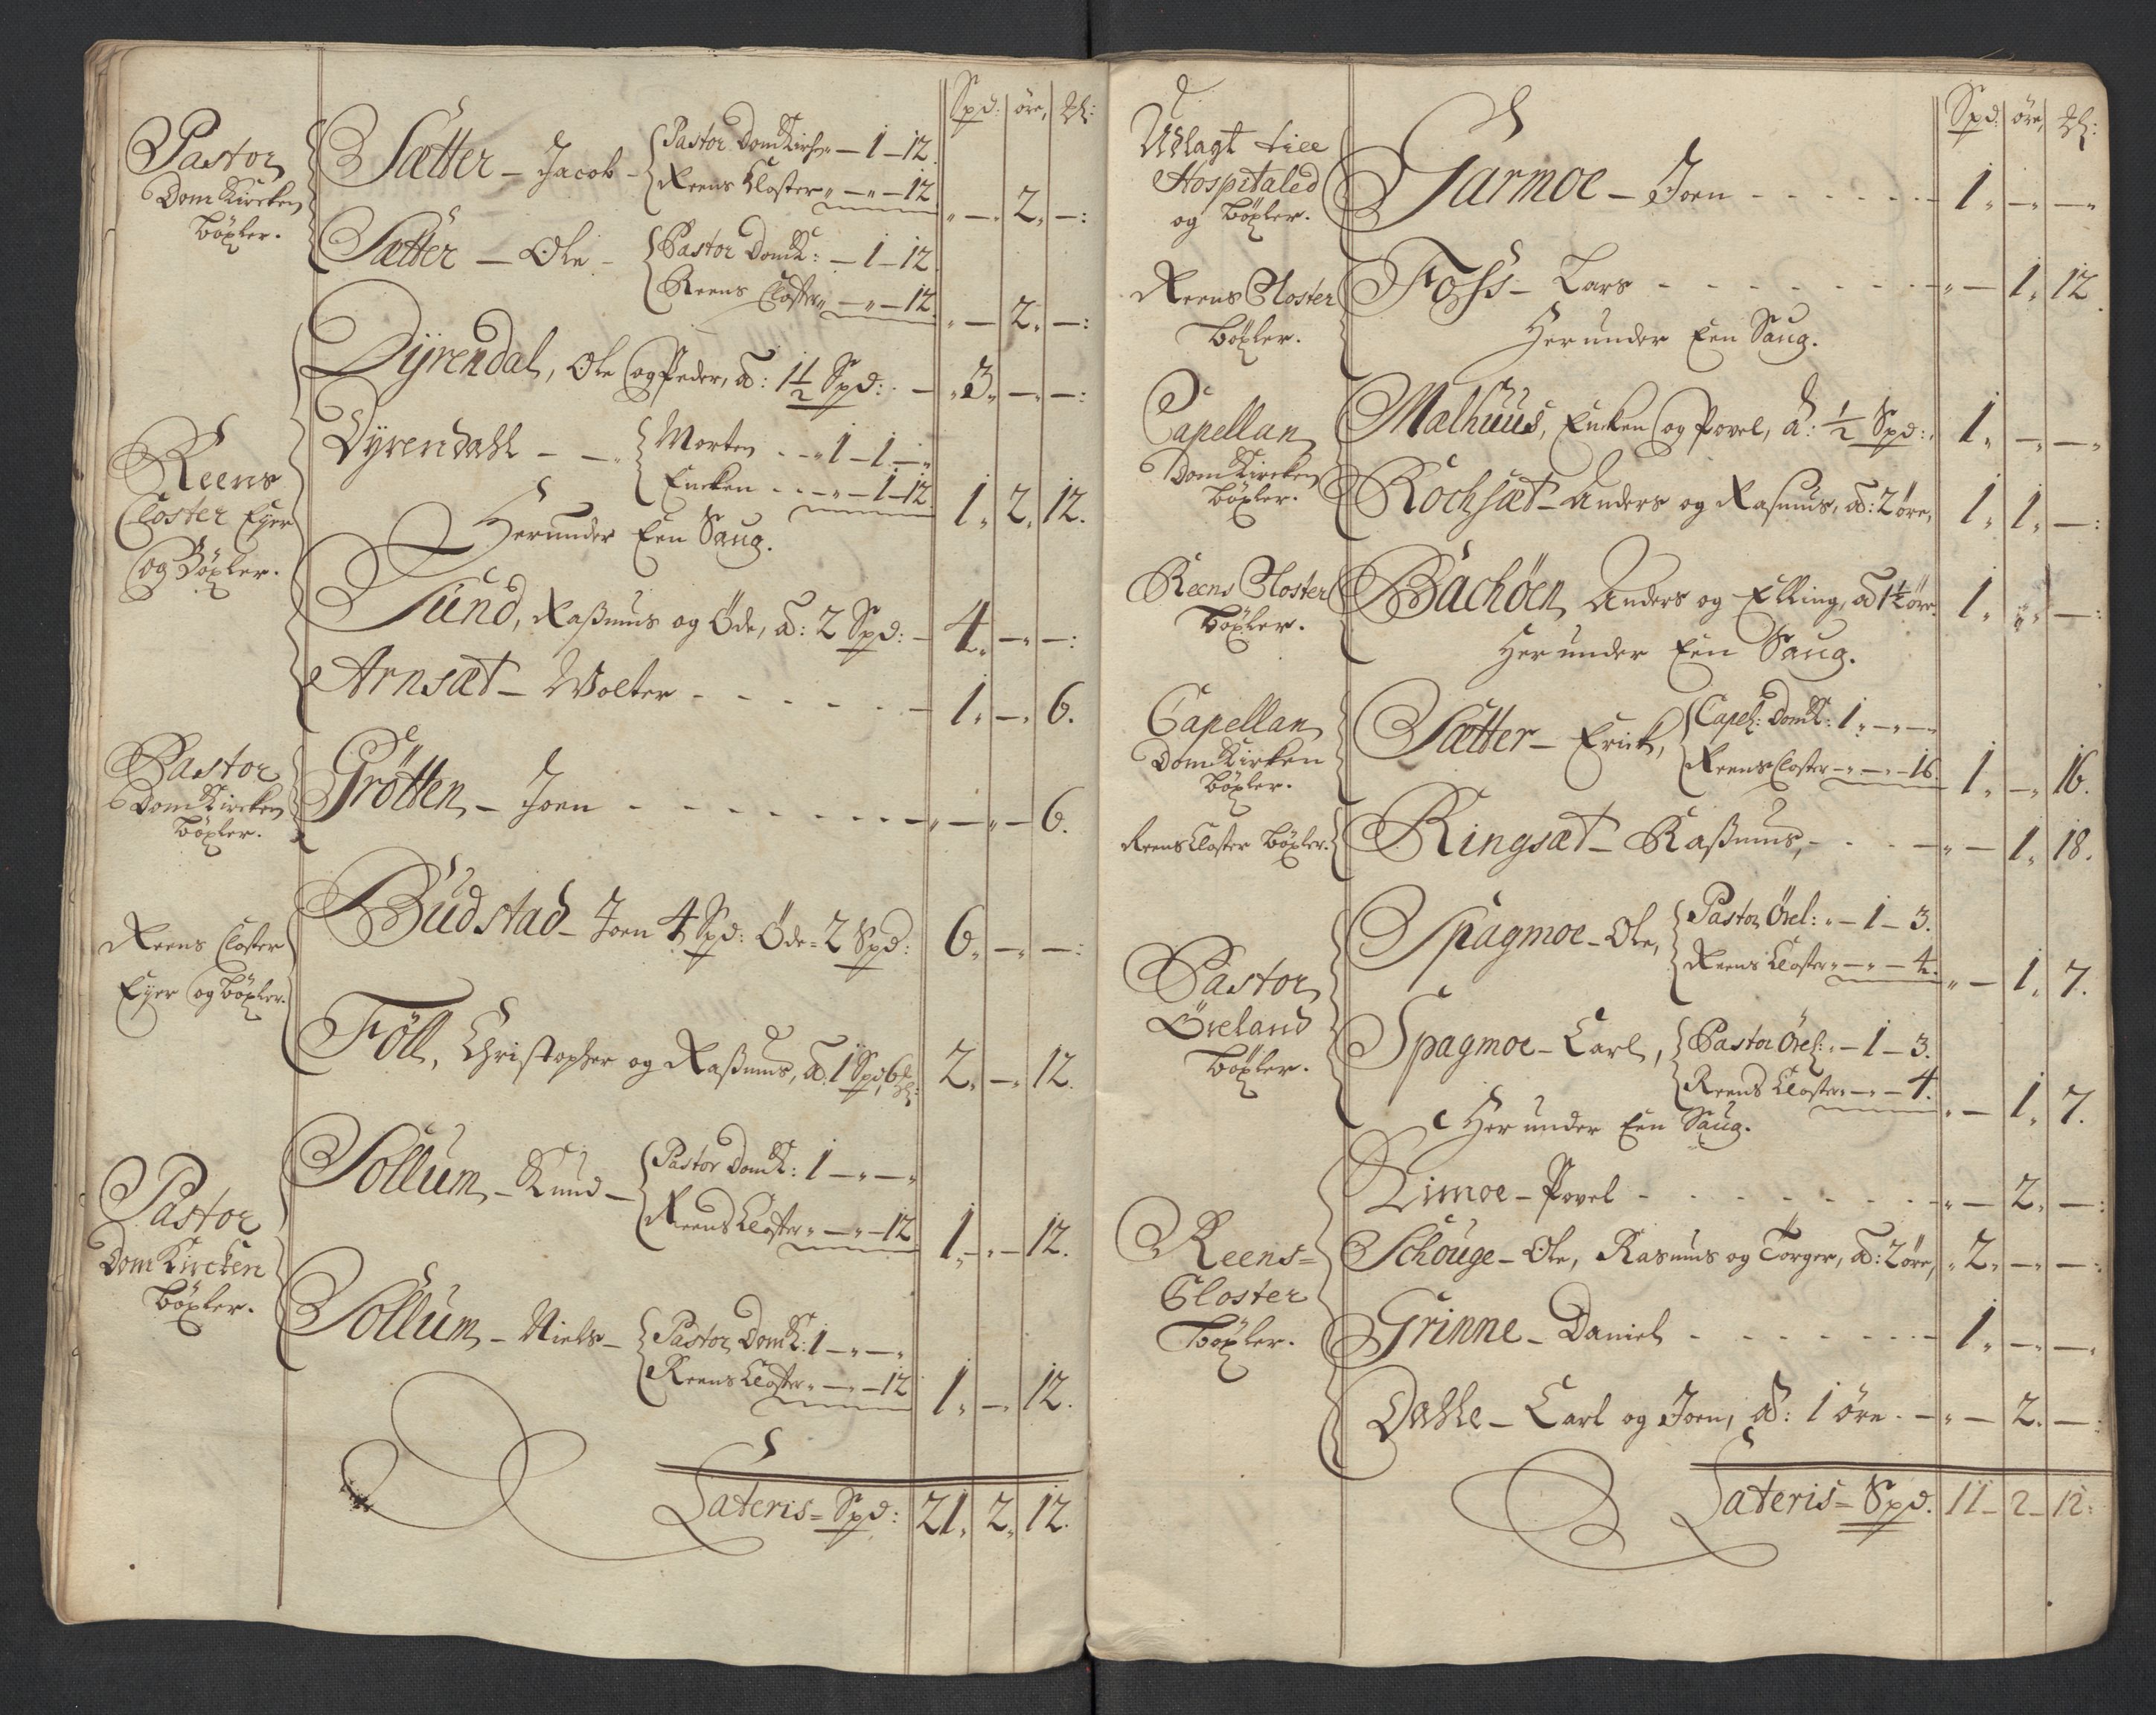 Spd: öre, ℔:
Pastor
Dom Kircken
böxler.
Sætter – Jacob – Pastor Domkirchen – 1 – 12.
Reens Closter „ – „ – 12 „ – „ 2. – :
Sætter – Ole – Pastor DomK: – 1 – 12
Reens Closter „ – „ – 12. „ – 2. – :
Reens
Closter Eyer
og Böxler.
Dÿrendal, Ole og Peder, à: 1½ Spd: – „ 3. – „ – :
Dÿrendahl – – Morten – „ 1 – 1 – „
Encken – – „ – 1 – 12. 1. 2. 12.
Herunder Een Saug.
Sund, Raßmus og Öde, à: 2 Spd: – 4. – „ – :
Arnsæt – Wolter – – – – – 1. – „ 6.
Pastor
Dom Kircken
böxler.
Grötten – Joen – – – – – – „ – „ – 6.
Reens Closter
Eyer og böxler.
Budstad – Joen 4 Spd: Öde = 2 Spd: 6. – „ – :
Föll, Christopher og Raßmus, à: 1 Spd 6 ℔: 2. – „ 12.
Pastor
Dom Kircken
böxler.
Sollum – Knud – Pastor DomK: 1 – „ – „
Reens Closter „ – „ – 12 1. – „ – 12.
Sollum – Niels – Pastor DomK: 1 – „ – „
Reens Closter „ – „ – 12 1. – „ 12.
Lateris = Spd: 21. 2. 12.
Spd: öre, ℔:
Udlagt till
Hospitaled
og böxler.
Garmoe – Joen – – – – – – 1. – „ – „
Reens Closter
böxler.
Foss – Lars – – – – – – – „ – 1. 12.
Herunder Een Saug.
Capellan
Dom Kircken
böxler.
Malhuus, Encken og Povel, à: ½ Spd: 1. – „ – „
Rochsæt – Anders og Rasmus, à: 2 öre, 1. 1. – :
Reens Closter
böxler.
Bachöen, Anders og Elling, à 1½ öre. 1. „ – :
Her under Een Saug.
Capellan
Dom Kirken
böxler.
Sætter – Erick, Capel: DomK: 1. – „ – „
Reens Closter – „ – „ – 16. 1. – „ 16.
Reens Closter böxler.
Ringsæt – Raßmus, – – – – „ – 1. 18.
Pastor
Öreland
böxler.
Spagmoe – Ole, Pastor Örel: „ – 1 – 3.
Reens Closter „ – „ – 4. „ – 1. 7.
Spagmoe – Carl, Pastor Örel: „ – 1 – 3.
Reens Closter „ – „ – 4. „ – 1. 7.
Her under Een Saug.
Reens =
Closter
böxler.
Limoe – Povel – – – – – – – – „ – 2. – :
Schouge – Ole, Rasmus og Torger, à: 2 öre, „ 2. – „ – :
Grinne – Daniel – – – – – – – 1. – „ – „
Dahle – Carl og Joen, à: 1 öre. – „ – 2. – :
Lateris = Spd. 11 – 2 – 12: